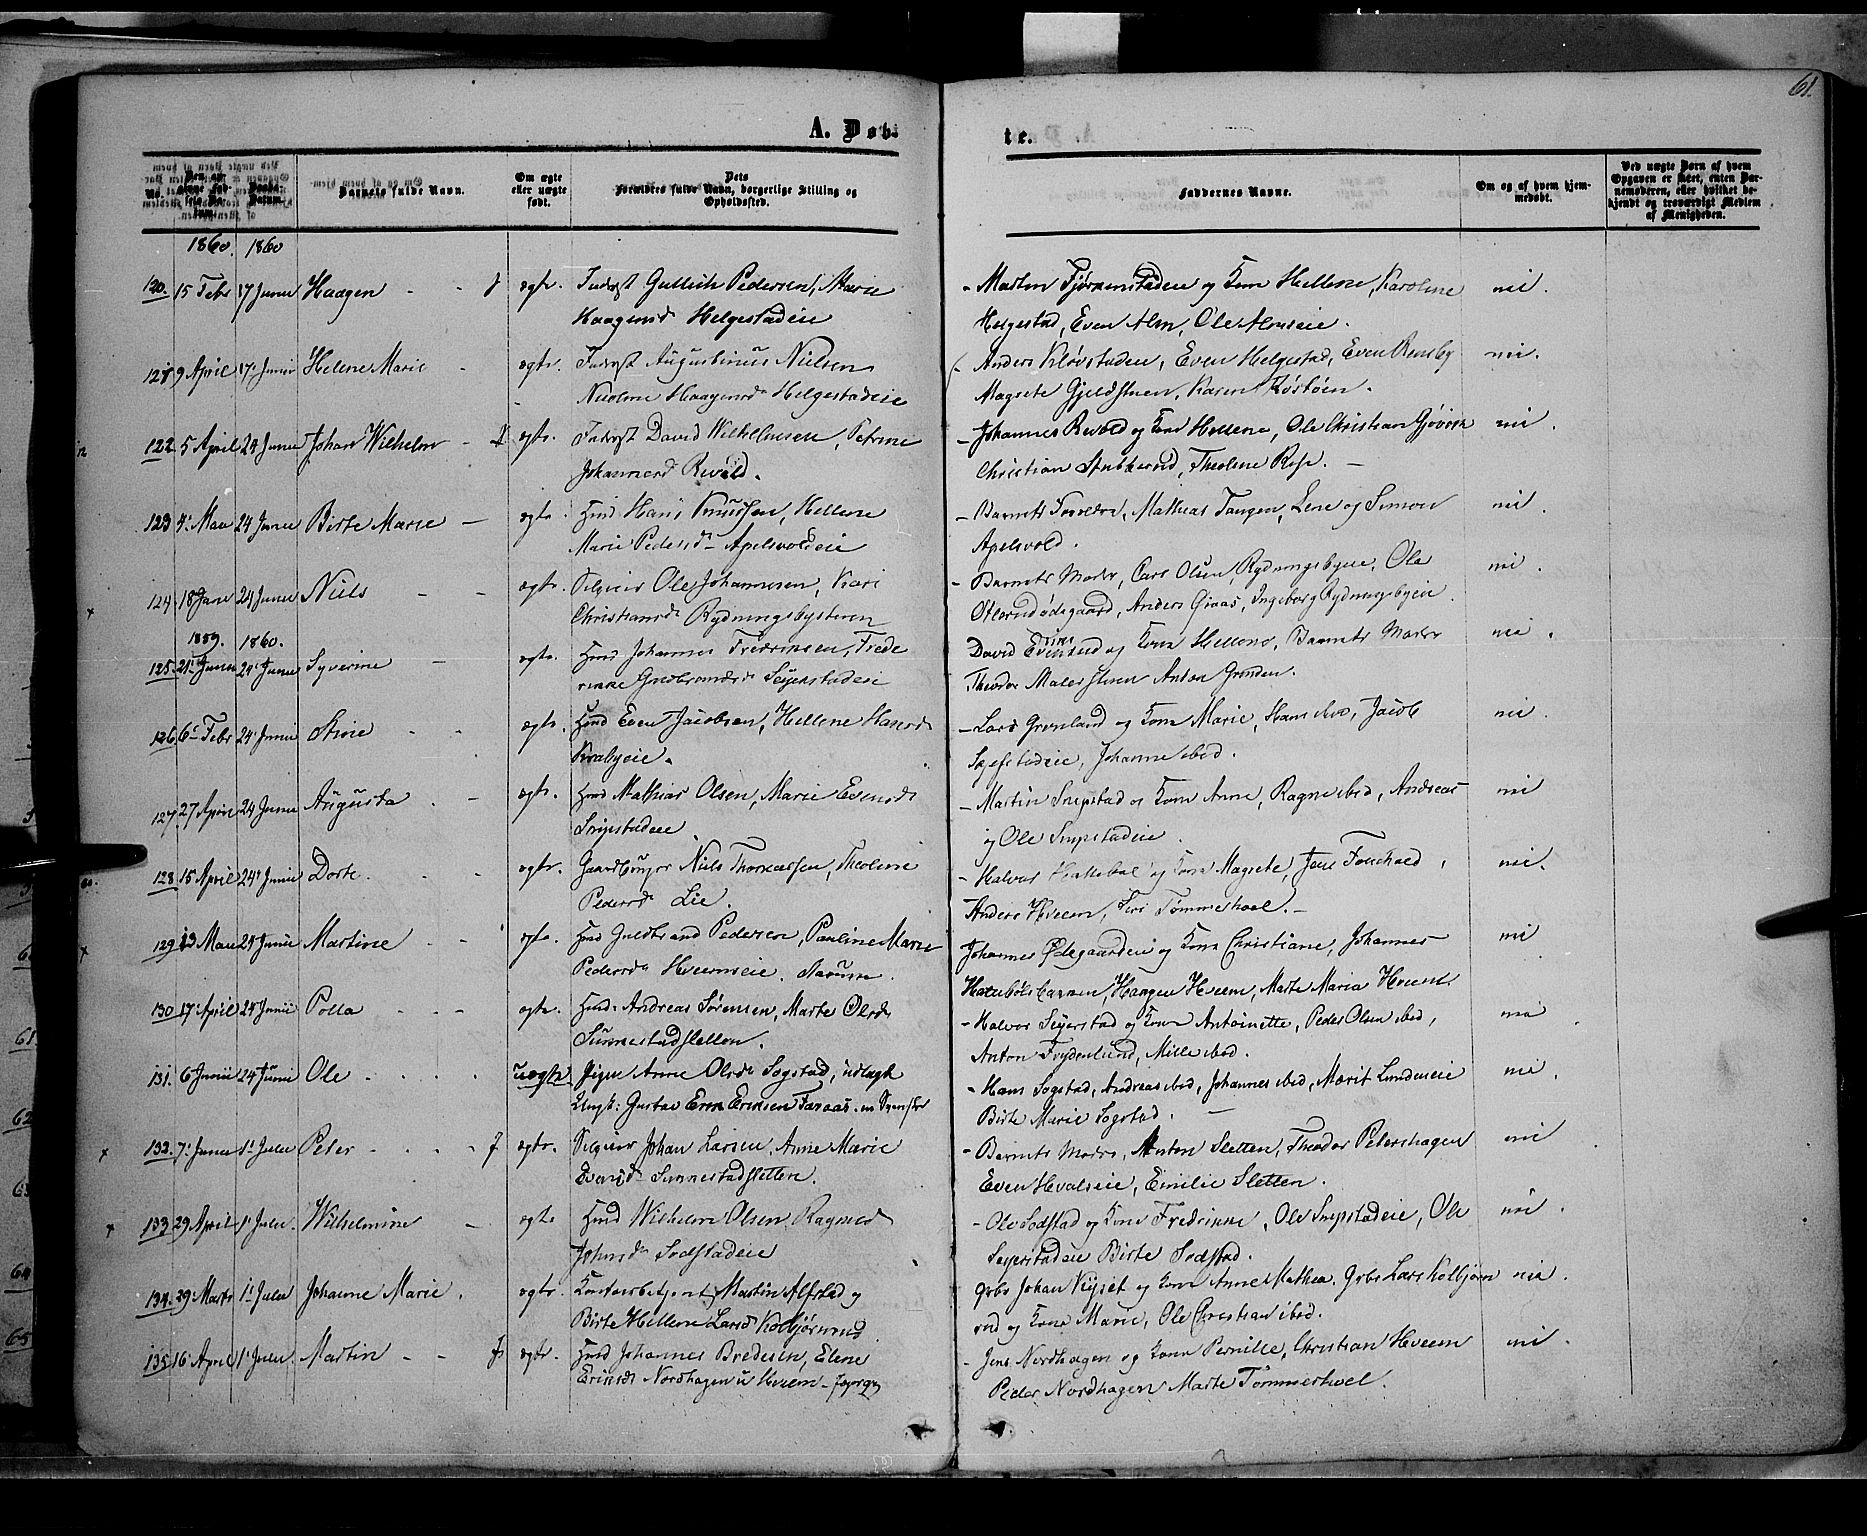 61.
A. Døb-
te.
No.
Barnets fulde Navn.
Om ægte eller uægte født.
Forældres fulde Navn, borgerlige Stilling og Opholdssted.
Faddernes Navne.
Om og af hvem hjemmedøbt.
Ved uægte Børn af hvem Opgaven er skeet, enten Barnemoderen, eller hvilket bekjendt og troværdigt Medlem af Menigheden.
1860. 1860
120. 15 Febr 17 Junii Haagen ægte. Inderst Gullich Pedersen, Marie
Haagensd Helgestadeie
Marten og Kone Hellene, Karoline nei.
Helgestad, Even Alm, Ole Almseie.
121 9 April 17 Junii Helene Marie ægte. Inderst Augustinus Nielsen
Nicoline Haagensd Helgestadeie
Anders Kløvstadeie, Even Helgestad, Even Rensby nei.
Magrete Gjeldstuen, Karen
122. 5 April 24 Junii Johan Wilhelm ægte. Inderst David Wilhelmsen, Petrine
Johannesd Revold.
Johannes Revold og Kone Hellene, Ole Christian Gjøvig nei.
Christian Stubberud, Theoline
123 4 Mai 24 Junii Birte Marie ægte. Hmd Hans Knudsen, Hellene
Marie Pedersd Apelsvoldeie
Barnets Forældre, Mathias Tangen, Lene og Simon nei.
Apelsvold.
124. 18 Jan 24 Junii Niels ægte. Selveier Ole Johannesen, Kari
Christiansd
Barnets Moder, Carl Olsen, Rydningsbyeie, Ole nei.
Anders Graas, Ingeborg Rydningsbyeie.
1859. 1860.
125. 21 Junii 24 Junii Syverine ægte. Hmd Johannes Fredriksen, Frede
rikke Gudbrandsd Seijerstadeie
David og Kone Hellene, Barnets Moder nei.
Theodor Anton Grønden.
126. 6 Febr 24 Junii Stine ægte. Hmd Even Jacobsen, Hellene Hansd
Kralbyeie.
Lars Grønland og Kone Marie, Hans ibd, Jacob nei.
Johanne ibed.
127. 27 April 24 Junii Augusta ægte. Hmd Mathias Olsen, Marie Evensd
Snipstadeie
Martin Snipstad og Kone Anne, Ragne ibed, Andreas nei
og Ole Snipstadeie.
128 15 April 24 Junii Dorte. ægte. Gaardbruger Niels Thorvaldsen, Theoline
Pedersd Lie.
Halvor og Kone Magrete, Jens nei.
Anders Hveem, Siri Tømmerhoel.
129 13 Mai 24 Junii Martine ægte. Hmd Guldbrand Pedersen, Pauline Marie
Pedersd Hveemseie.
Johannes Ødegaarden og Kone Christiane, Johannes nei
Haagen Hveem, Marte Maria Hveem.
130 17 April 24 Junii Polla ægte. Hmd Andreas Sørensen, Marte Olsd
Sunnestadsletten.
Halvor Seijerstad og Kone Antoinette, Peder Olsen ibed, nei
Anton Frydenlund, Mille ibed.
131. 6 Junii 24 Junii Ole uægte Pigen Anne Olsd Sogstad, udlagt
Ungk: Gustav Erik Eriksen Faraas.
Hans Sogstad, Andreas ibed, Johannes ibed, Marit Lundeneie nei.
Birte Marie Sogstad.
132. 7 Junii 1 Julii Peter ægte. Selveier Johan Larsen, Anne Marie
Evensd Sunnestadsletten.
Barnets Moder, Anton Sletten, Theodor Petershagen nei
Even Hvalseie, Emilie Sletten.
133 29 April 1 Julii Wilhelmine ægte Hmd Wilhelm Olsen, Ragnild
Johnsd Sodstadeie
Ole Sodstad og Kone Fredrikke, Ole Snipstadeie, Ole nei.
Seijerstadeie Birte Sodstad.
134. 29 Marts 1 Julii Johanne Marie. ægte. Martin Alfstad og
Birte Hellene Larsd Kolbjørnrud
Grbr Johan Nyset og Kone Anne Mathea. Grbr Lars Kolbjørn nei.
rud og Kone Marie, Ole Christian ibed.
135 16 April 1 Julii Martin ægte. Hmd Johannes Bredesen, Elene
Eriksd Nordhagen u Hveem
Jens Nordhagen og Kone Pernille, Christian Hveem nei.
Peder Nordhagen Marte Tømmerhoel.